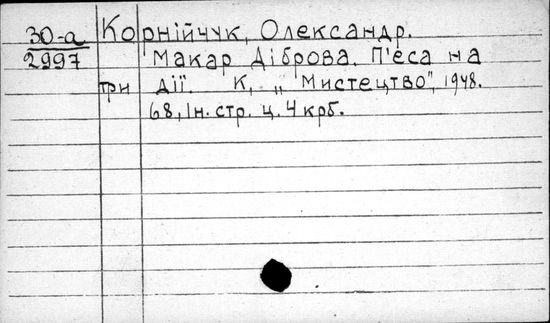 30-а Корнійчук, Олександр.
2997 Макар Діброва. П'еса на
три дії. К, „Мистецтво", 1948.
68, Ін. стр. ц. 4 крб.